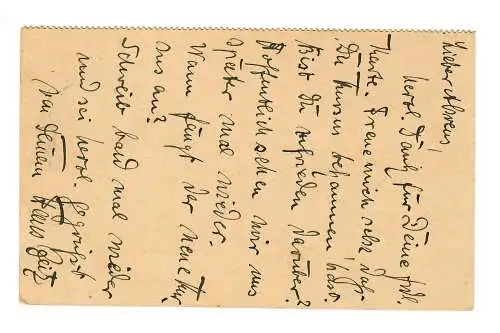 Lieber Ahrens!
herzl. Dank für Deine frdl.
Karte. Freue mich sehr, daß
Du Kursus bekommen hast.
Bist Du zufrieden darüber?
Hoffentlich sehen wir uns
später mal wieder.
Wann fängt der neue Kur-
sus an?
Schreib bald mal wieder
und sei herzl. gegrüßt
von Deinem Hans